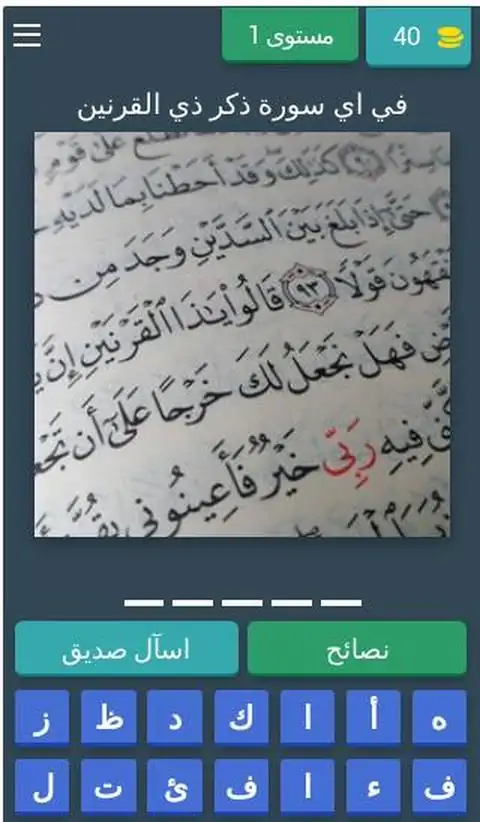 40
مستوى 1
في اي سورة ذكر ذي القرنين
كَذَٰلِكَ وَقَدْ أَحَطْنَا بِمَا لَدَيْهِ
حَتَّىٰ إِذَا بَلَغَ بَيْنَ ٱلسَّدَّيْنِ وَجَدَ مِن
قَوْلًا ٩٣ قَالُوا۟ يَٰذَا ٱلْقَرْنَيْنِ إِنَّ
فَهَلْ نَجْعَلُ لَكَ خَرْجًا عَلَىٰٓ أَن
فِيهِ رَبِّى خَيْرٌ فَأَعِينُونِى
نصائح
اسآل صديق
ه أ ا ك د ظ ز
ف ء ا ف ئ ت ل